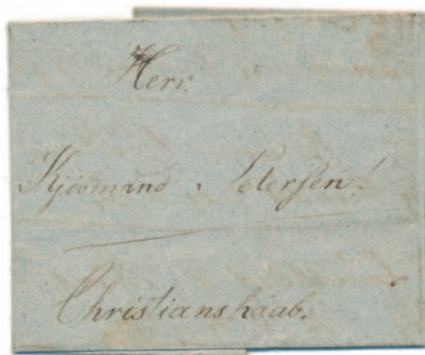 Herr
Kjøbmand Petersen!
Christianshaab.